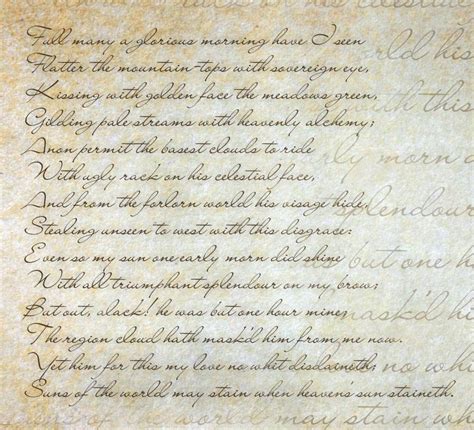 Full many a glorious morning have I seen
Flatter the mountain tops with sovereign eye,
Kissing with golden face the meadows green,
Gilding pale streams with heavenly alchemy;
Anon permit the basest clouds to ride
With ugly rack on his celestial face,
And from the forlorn world his visage hide,
Stealing unseen to west with this disgrace:
Even so my sun one early morn did shine
With all triumphant splendour on my brow;
But out, alack! he was but one hour mine;
The region cloud hath mask'd him from me now.
Yet him for this my love no whit disdaineth;
Suns of the world may stain when heaven's sun staineth.
world his
early morn
splendour
but one
mask'd
no whit
of the world may stain when